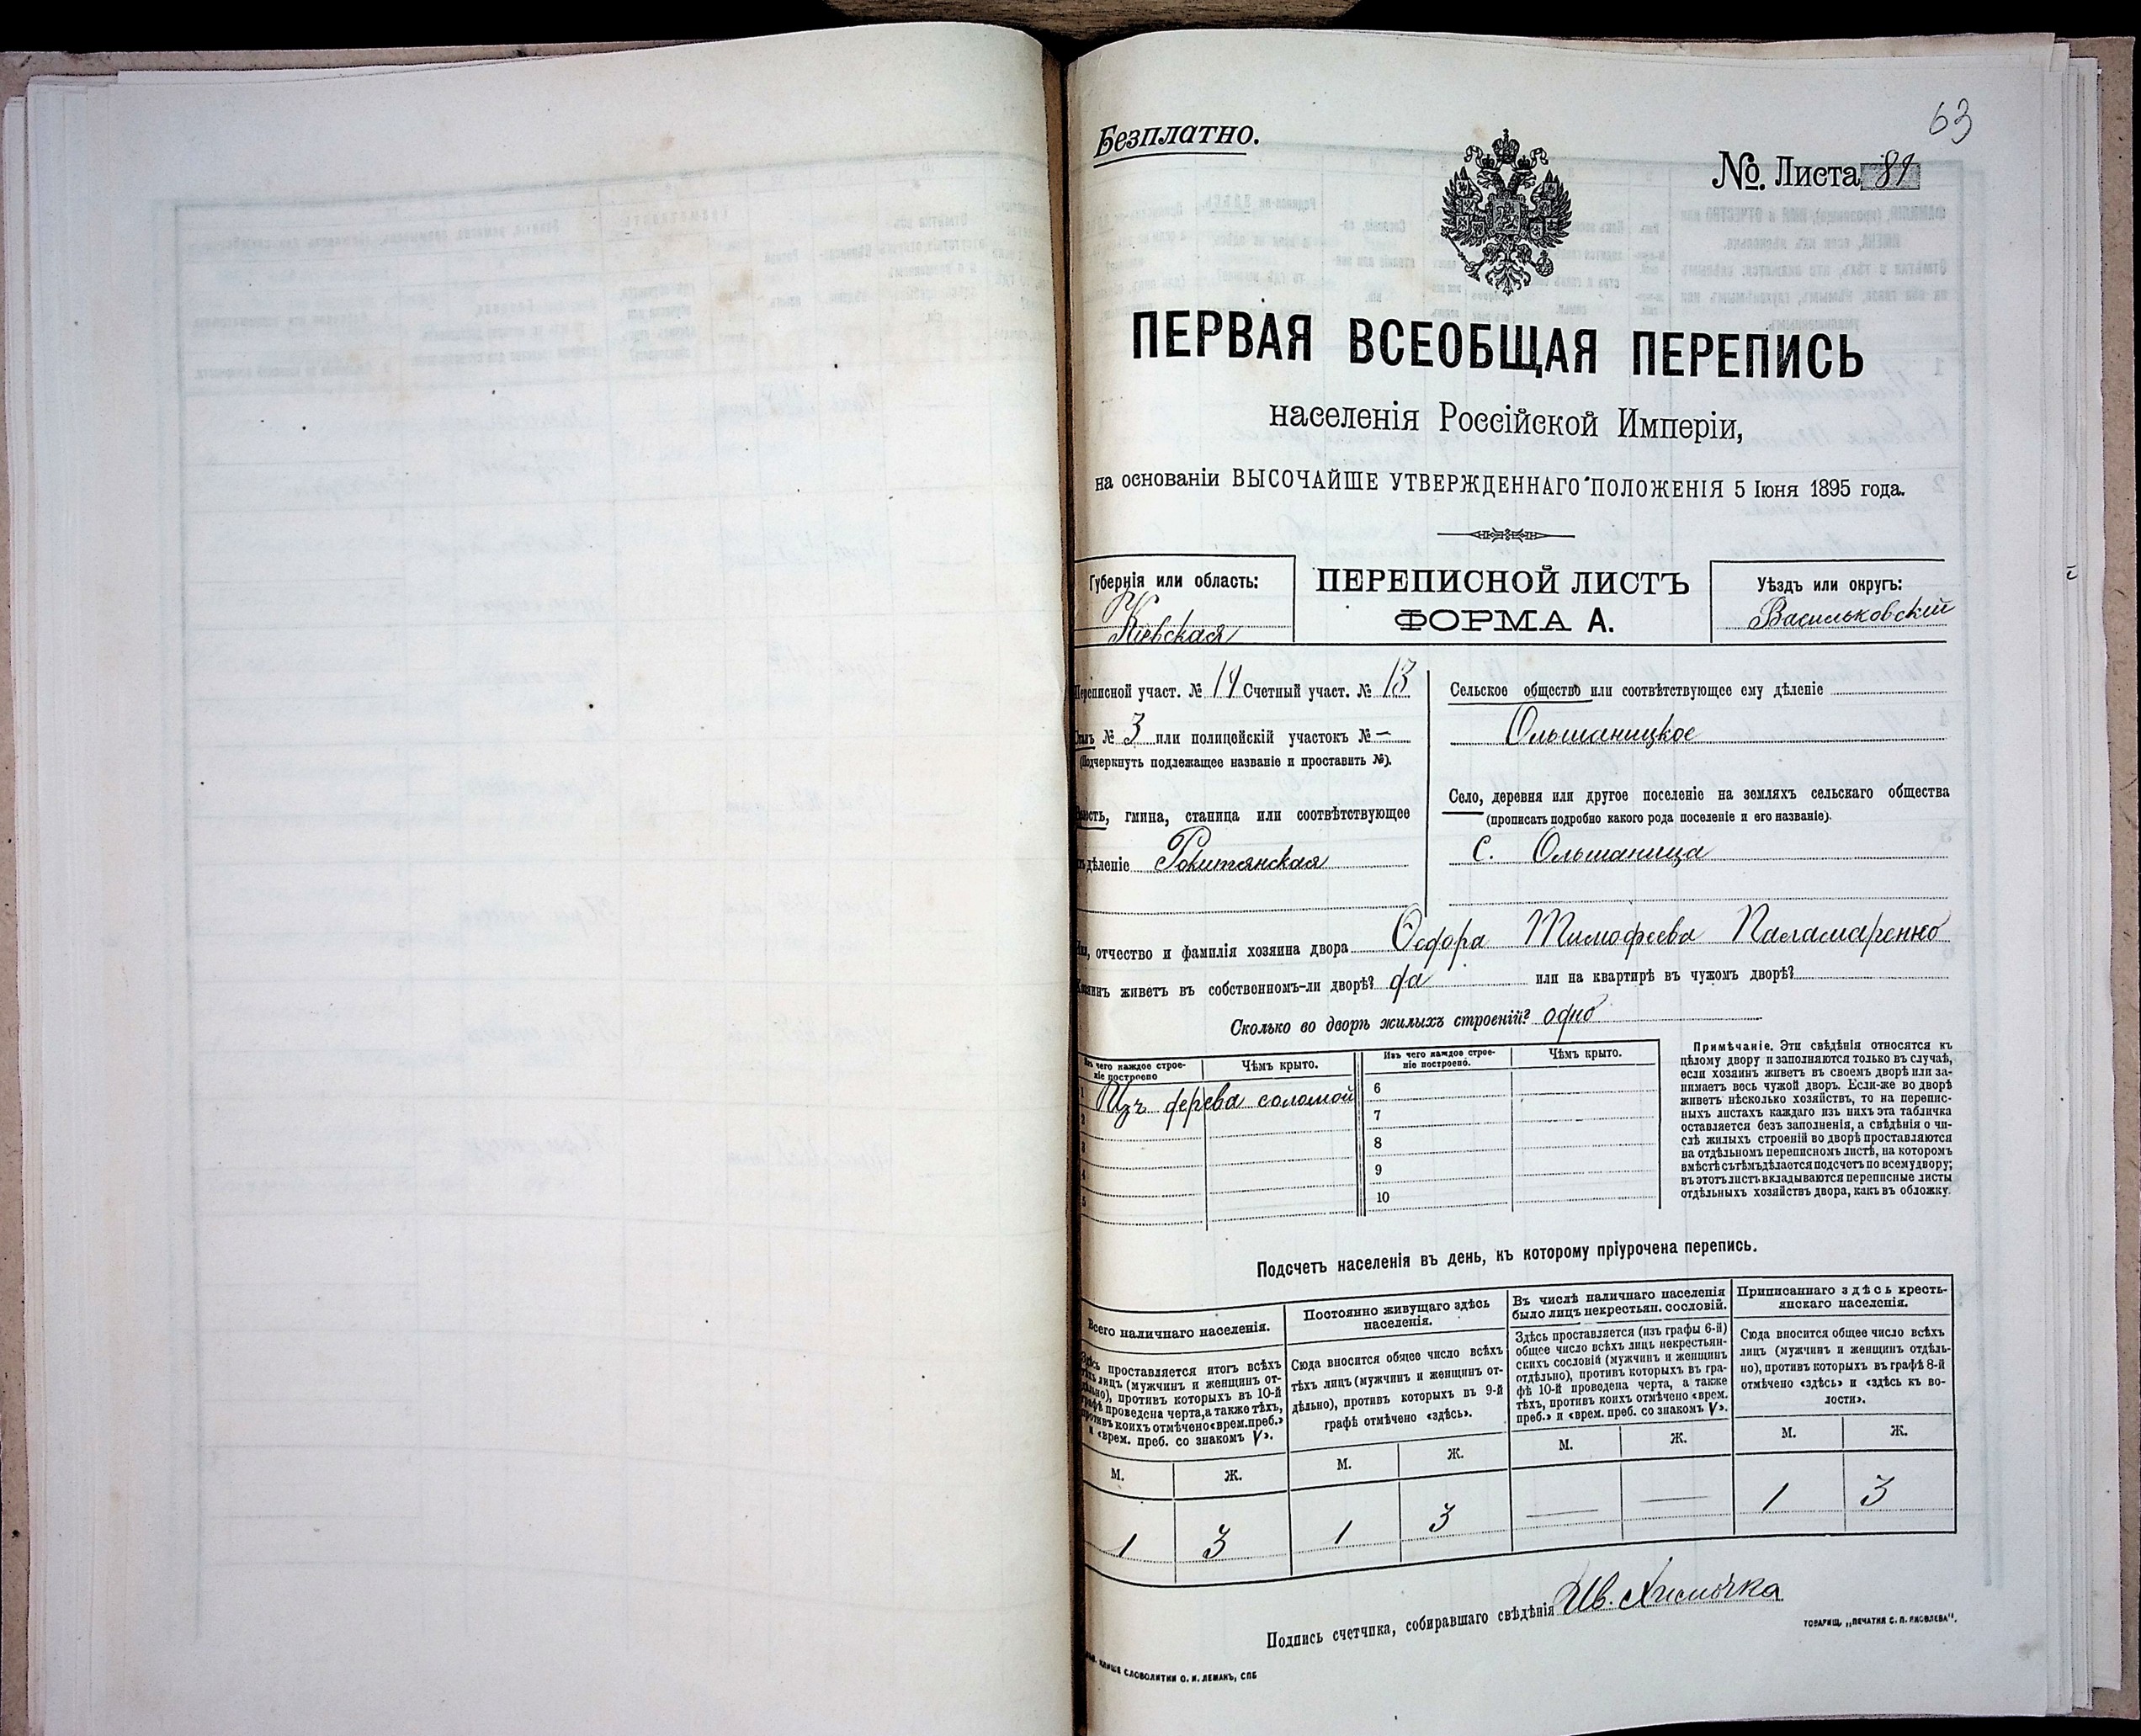 63
Безплатно.
№. Листа 81
ПЕРВАЯ ВСЕОБЩАЯ ПЕРЕПИСЬ
населенія Россійской Имперіи,
на основаніи ВЫСОЧАЙШЕ УТВЕРЖДЕННАГО ПОЛОЖЕНІЯ 5 Іюня 1895 года.
Губернія или область:
Кіевская
ПЕРЕПИСНОЙ ЛИСТЪ
ФОРМА А.
Уѣздъ или округъ:
Васильковскій
Переписной участ. № 14 Счетный участ. № 13
Станъ № 3 или полицейскій участокъ № —
(Подчеркнуть подлежащее названіе и проставить №).
Волость, гмина, станица или соотвѣтствующее
дѣленіе Рокитянская
Сельское общество или соотвѣтствующее ему дѣленіе
Ольшаницкое
Село, деревня или другое поселеніе на земляхъ сельскаго общества
(прописать подробно какого рода поселеніе и его названіе).
С. Ольшаница
отчество и фамилія хозяина двора Федора Тимофеева Паламаренко
Хозяинъ живетъ въ собственномъ-ли дворѣ? да или на квартирѣ въ чужомъ дворѣ?
Сколько во дворѣ жилыхъ строеній? одно
Изъ чего каждое строе-
ніе построено
Чѣмъ крыто.
1 Изъ дерева соломой
2
3
4
5
Изъ чего каждое строе-
ніе построено.
Чѣмъ крыто.
6
7
8
9
10
Примѣчаніе. Эти свѣдѣнія относятся къ
цѣлому двору и заполняются только въ случаѣ,
если хозяинъ живетъ въ своемъ дворѣ или за-
нимаетъ весь чужой дворъ. Если-же во дворѣ
живетъ нѣсколько хозяйствъ, то на перепис-
ныхъ листахъ каждаго изъ нихъ эта табличка
оставляется безъ заполненія, а свѣдѣнія о чи-
слѣ жилыхъ строеній во дворѣ проставляются
на отдѣльномъ переписномъ листѣ, на которомъ
вмѣстѣ съ тѣмъ дѣлается подсчетъ по всему двору;
въ этотъ листъ вкладываются переписные листы
отдѣльныхъ хозяйствъ двора, какъ въ обложку.
Подсчетъ населенія въ день, къ которому пріурочена перепись.
Всего наличнаго населенія.
Здѣсь проставляется итогъ всѣхъ
тѣхъ лицъ (мужчинъ и женщинъ от-
дѣльно), противъ которыхъ въ 10-й
графѣ проведена черта, а также тѣхъ,
противъ коихъ отмѣчено «врем. преб.»
и «врем. преб. со знакомъ V».
М. Ж.
1 3
Постоянно живущаго здѣсь
населенія.
Сюда вносится общее число всѣхъ
тѣхъ лицъ (мужчинъ и женщинъ от-
дѣльно), противъ которыхъ въ 9-й
графѣ отмѣчено «здѣсь».
М. Ж.
1 3
Въ числѣ наличнаго населенія
было лицъ некрестьян. сословій.
Здѣсь проставляется (изъ графы 6-й)
общее число всѣхъ лицъ некрестьян-
скихъ сословій (мужчинъ и женщинъ
отдѣльно), противъ которыхъ въ гра-
фѣ 10-й проведена черта, а также
тѣхъ, противъ коихъ отмѣчено «врем.
преб.» и «врем. преб. со знакомъ V».
М. Ж.
— —
Приписаннаго здѣсь кресть-
янскаго населенія.
Сюда вносится общее число всѣхъ
лицъ (мужчинъ и женщинъ отдѣль-
но), противъ которыхъ въ графѣ 8-й
отмѣчено «здѣсь» и «здѣсь къ во-
лости».
М. Ж.
1 3
Подпись счетчика, собиравшаго свѣдѣнія Ив.
ТОВАРИЩ. „ПЕЧАТНЯ С. П. ЯКОВЛЕВА“.
СЛОВОЛИТНИ О. И. ЛЕМАНЪ, СПБ